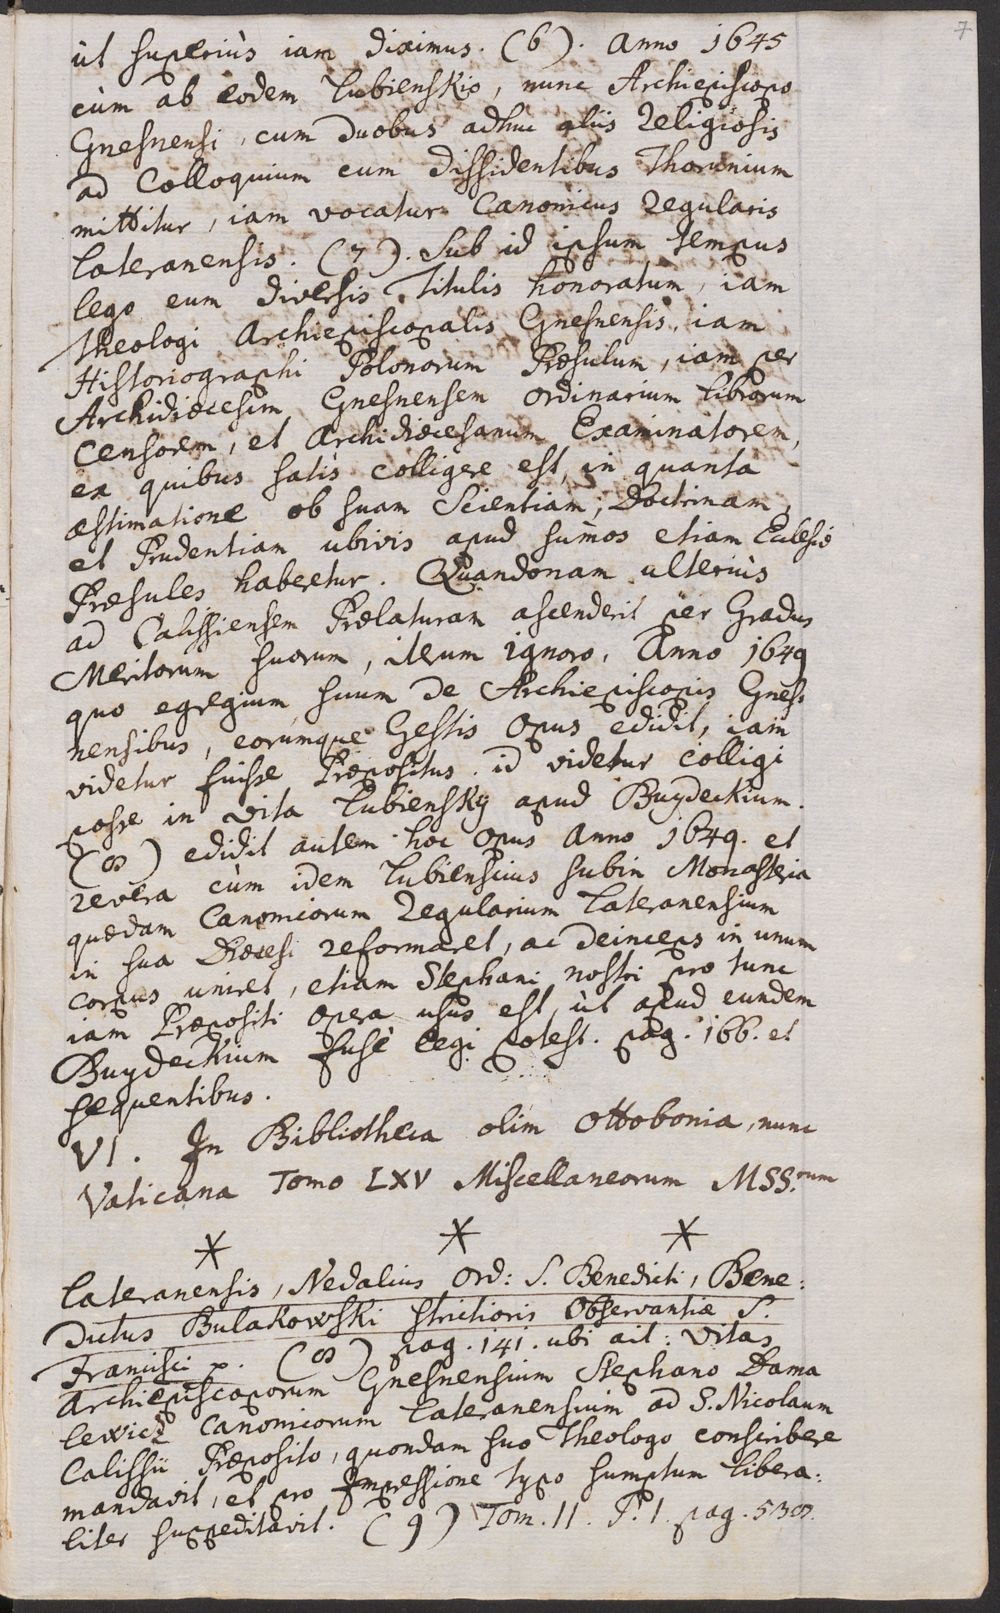 7
ut superiùs iam diximus. (6). Anno 1645
cùm ab eodem Lubienskio, nunc Archiepiscopo
Gnesnensi, cum duobus adhuc aliis Religiosis
ad Colloquium cum dissidentibus Thorunium
mittitur, iam vocatur Canonicus Regularis
Lateranensis. (7). Sub id ipsum tempus
lego eum diversis Titulis honoratum, iam
Theologi Archiepiscopalis Gnesnensis, iam
Historiographi Polonorum Præsulum, iam per
Archidiœcesim Gnesnensem ordinarium librorum
Censorem, et Archidiœcesanum Examinatorem,
ex quibus satis colligere est, in quanta
æstimatione ob suam Scientiam, Doctrinam,
et Prudentiam ubivis apud sum̄os etiam Eclesiæ
Præsules haberetur. Quandonam ulteriùs
ad Calissiensem Prælaturam ascenderit per Gradus
Meritorum suorum, iterum ignoro. Anno 1649
quo egregium suum de Archiepiscopis Gnes-
nensibus, eorumque Gestis Opus edidit, iam
videtur fuisse Præpositus. id videtur colligi
posse in vita Lubienskÿ apud Buydeckium.
(8) edidit autem hoc Opus Anno 1649. et
revera cùm idem Lubienscius subin Monasteria
quædam Canonicorum Regularium Lateranensium
in sua Diœcesi reformaret, ac deinceps in unum
corpus uniret, etiam Stephani nostri pro tunc
iam Præpositi opera usus est, ùt apud eundem
Buydeckium fusè legi potest. pag. 166. et
sequentibus.
VI. In Bibliotheca olim Ottobonia, nunc
Vaticana Tomo LXV Miscellaneorum MSS.rum
* * *
Lateranensis, Nedalius Ord: S. Benedicti, Bene:
dictus Bulakowski strictioris Observantiæ S.
Francisci p. (8) pag. 141. ubi ait: Vitas
Archiepiscoporum Gnesnensium Stephano Dama
lewicz Canonicorum Lateranensium ad S. Nicolaum
Calissii Præposito, quondam suo Theologo conscribere
mandavit, et pro Impressione typo sumptum libera:
liter suppeditavit. (9) Tom. II. P. I. pag. 538.